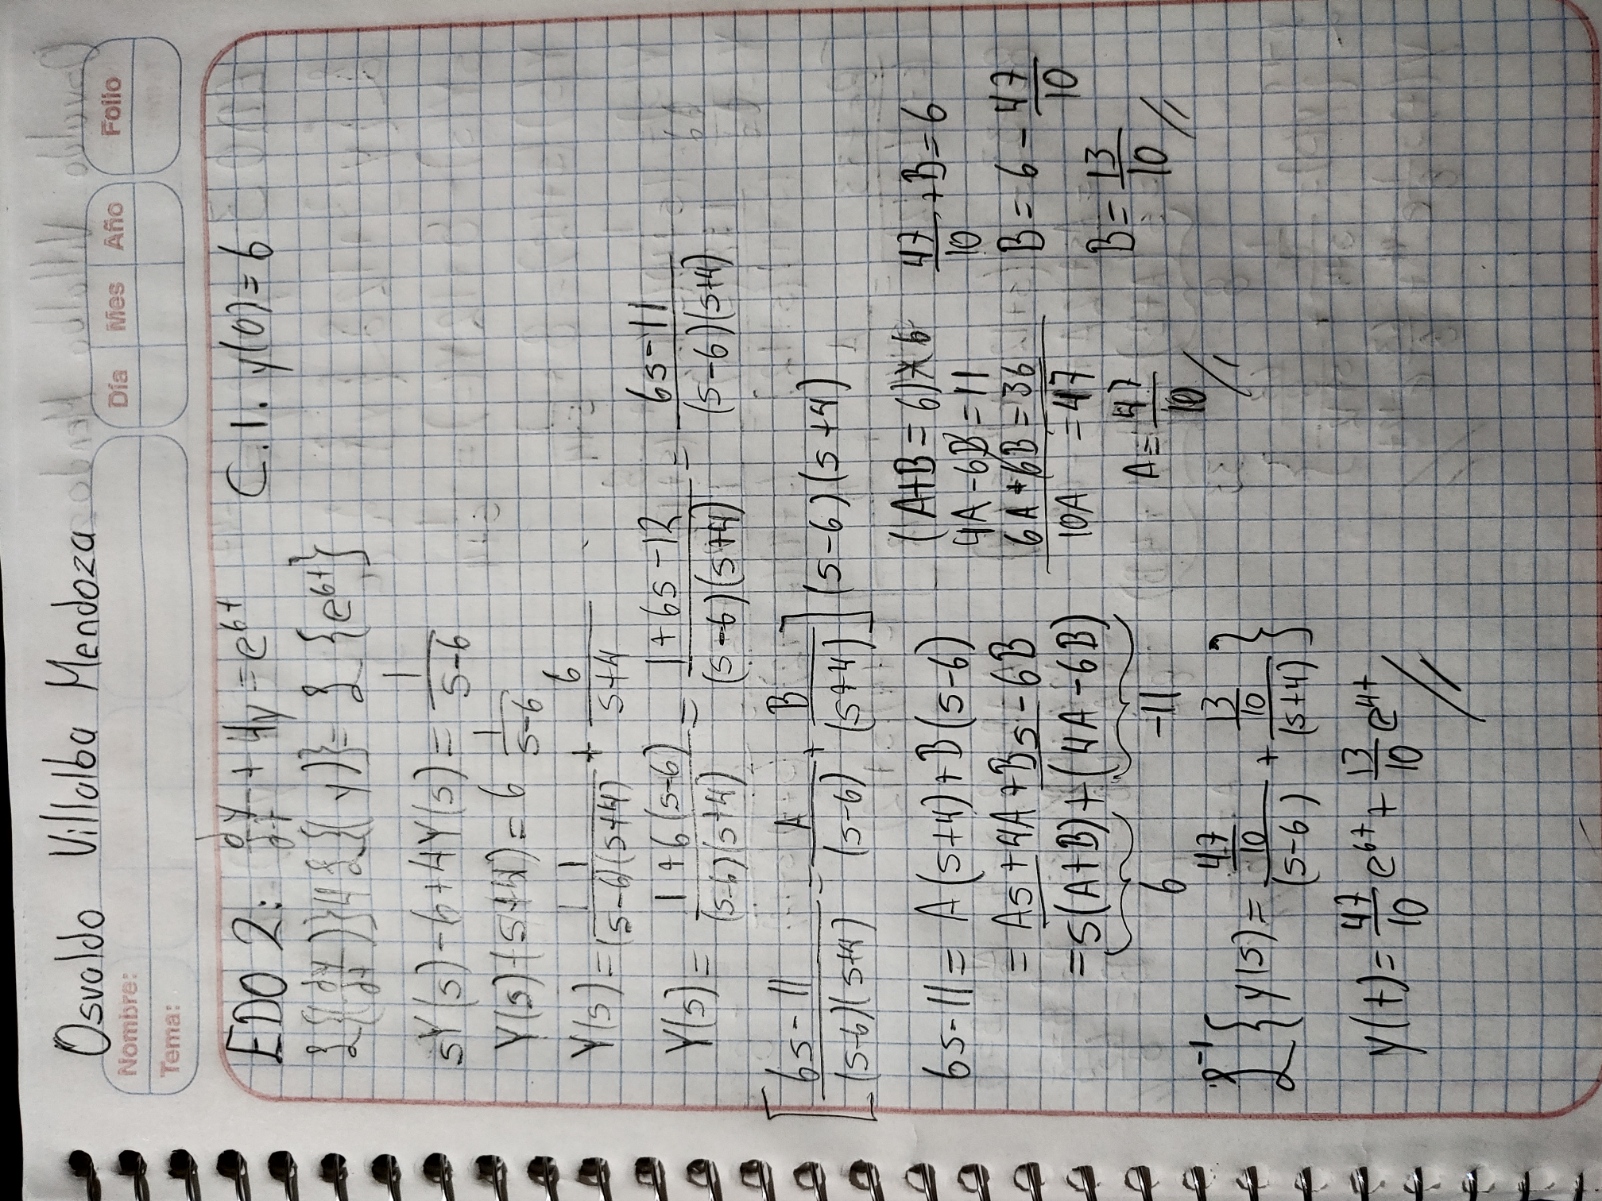 Osvaldo Villalba Mendoza
Nombre:
Tema:
Día Mes Año
Folio
EDO 2: dy/dt + 4y = e^6t C.I. y(0) = 6
ℒ{(dy/dt)}4 ℒ{(y)} = ℒ {e^6t}
sY(s) - 6 + 4Y(s) = 1/(s-6)
Y(s)(s+4) = 6 1/(s-6)
Y(s) = 1/((s-6)(s+4)) + 6/(s+4)
Y(s) = (1+6(s-6))/((s-6)(s+4)) = (1+6s-12)/((s-6)(s+4)) = (6s-11)/((s-6)(s+4))
[(6s-11)/((s-6)(s+4)) = A/(s-6) + B/(s+4)] (s-6)(s+4)
6s-11 = A(s+4) + B(s-6)
= As + 4A + Bs - 6B
= s(A+B) + (4A-6B)
6 -11
(A+B = 6)*6
4A - 6B = 11
6A + 6B = 36
10A = 47
A = 47/10 //
47/10 + B = 6
B = 6 - 47/10
B = 13/10 //
ℒ^-1 {y(s) = (47/10)/(s-6) + (13/10)/(s+4)}
y(t) = 47/10 e^6t + 13/10 e^4t //